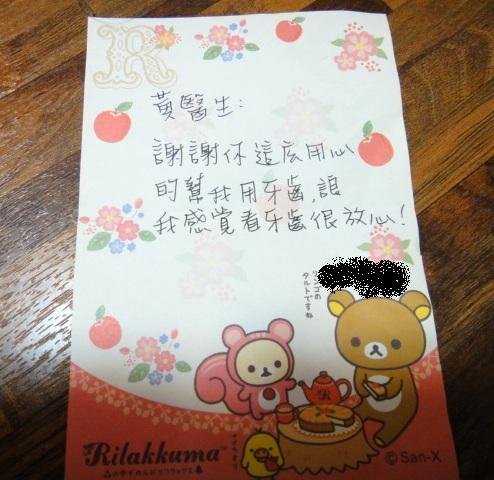 R
黃醫生:
謝謝你這庅用心
的幫我用牙齒,讓
我感覺看牙齒很放心!
リンゴの
タルトですね
R
Rilakkuma™
©San-X